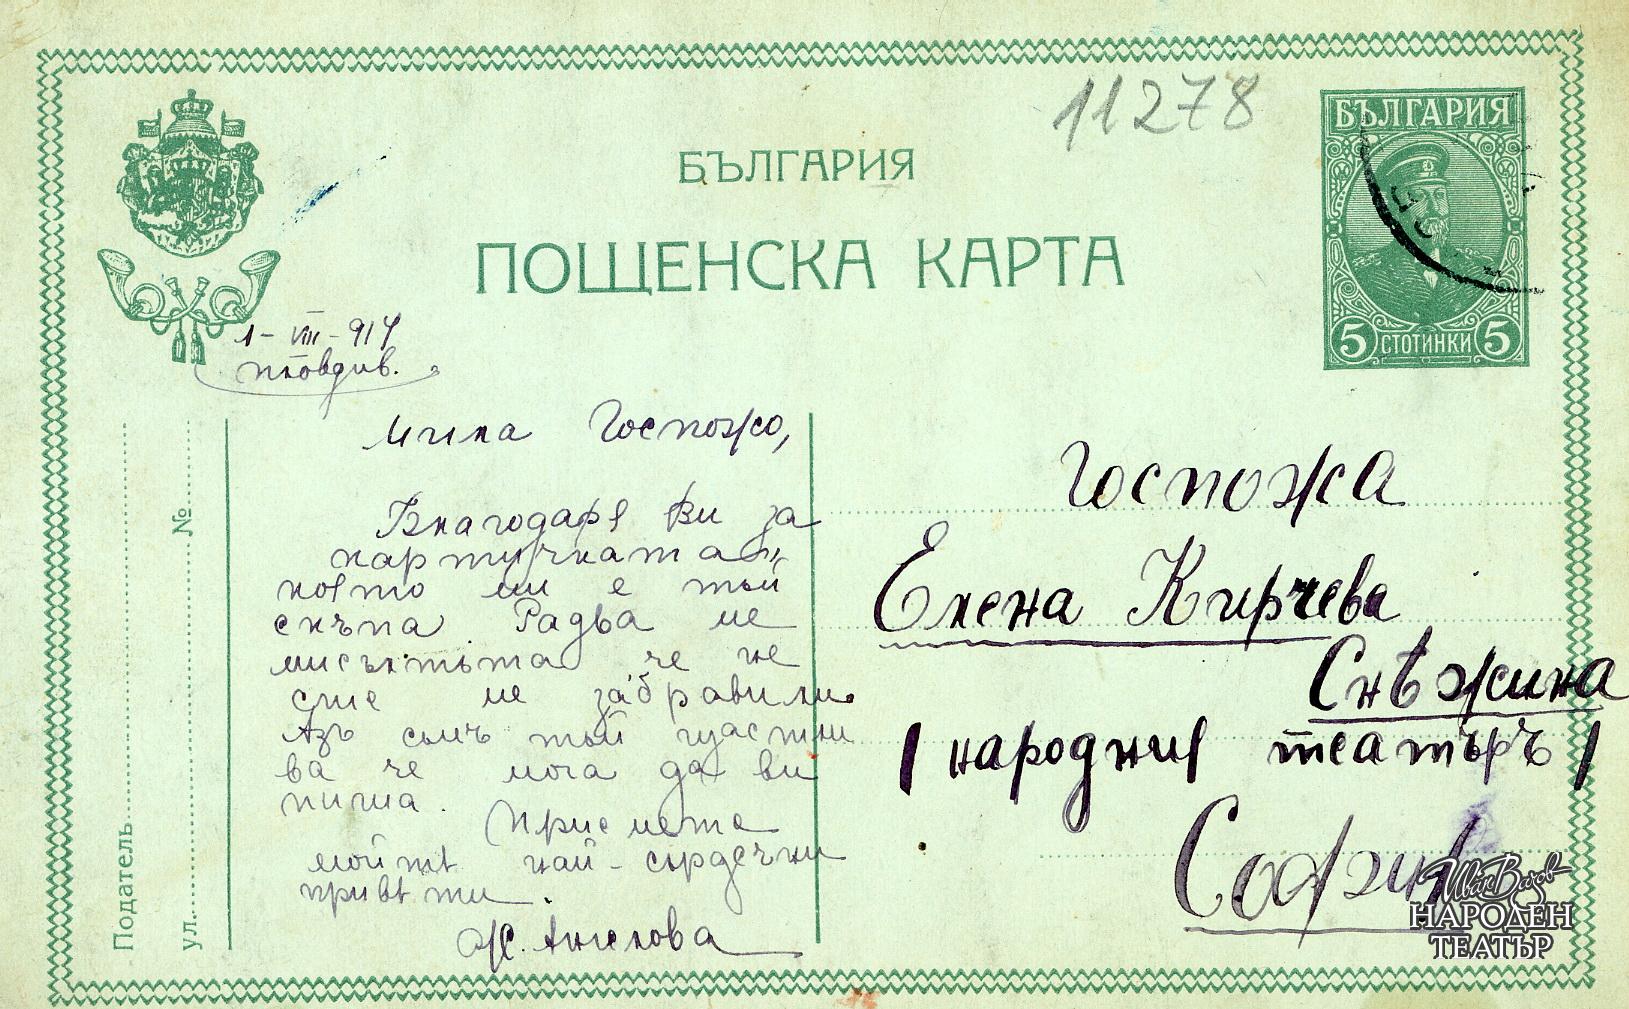 11278
БЪЛГАРИЯ
БЪЛГАРИЯ
ПОЩЕНСКА КАРТА
5 СТОТИНКИ 5
1-VIII-914
Пловдив.
Мила Госпожо,
Благодаря Ви за
картичката,
която ми е тъй
скъпа. Радва ме
мисъльта че не
сте ме забравили.
Азъ съмъ тъй щастли
ва че мога да ви
пиша.
Приемете
моитѣ най-сърдечни
привѣти.
Ж. Ангелова
Податель
ул. №
Госпожа
Елена Кирчева
Снѣжина
/народния театъръ/
София
Иван Вазов
НАРОДЕН
ТЕАТЪР